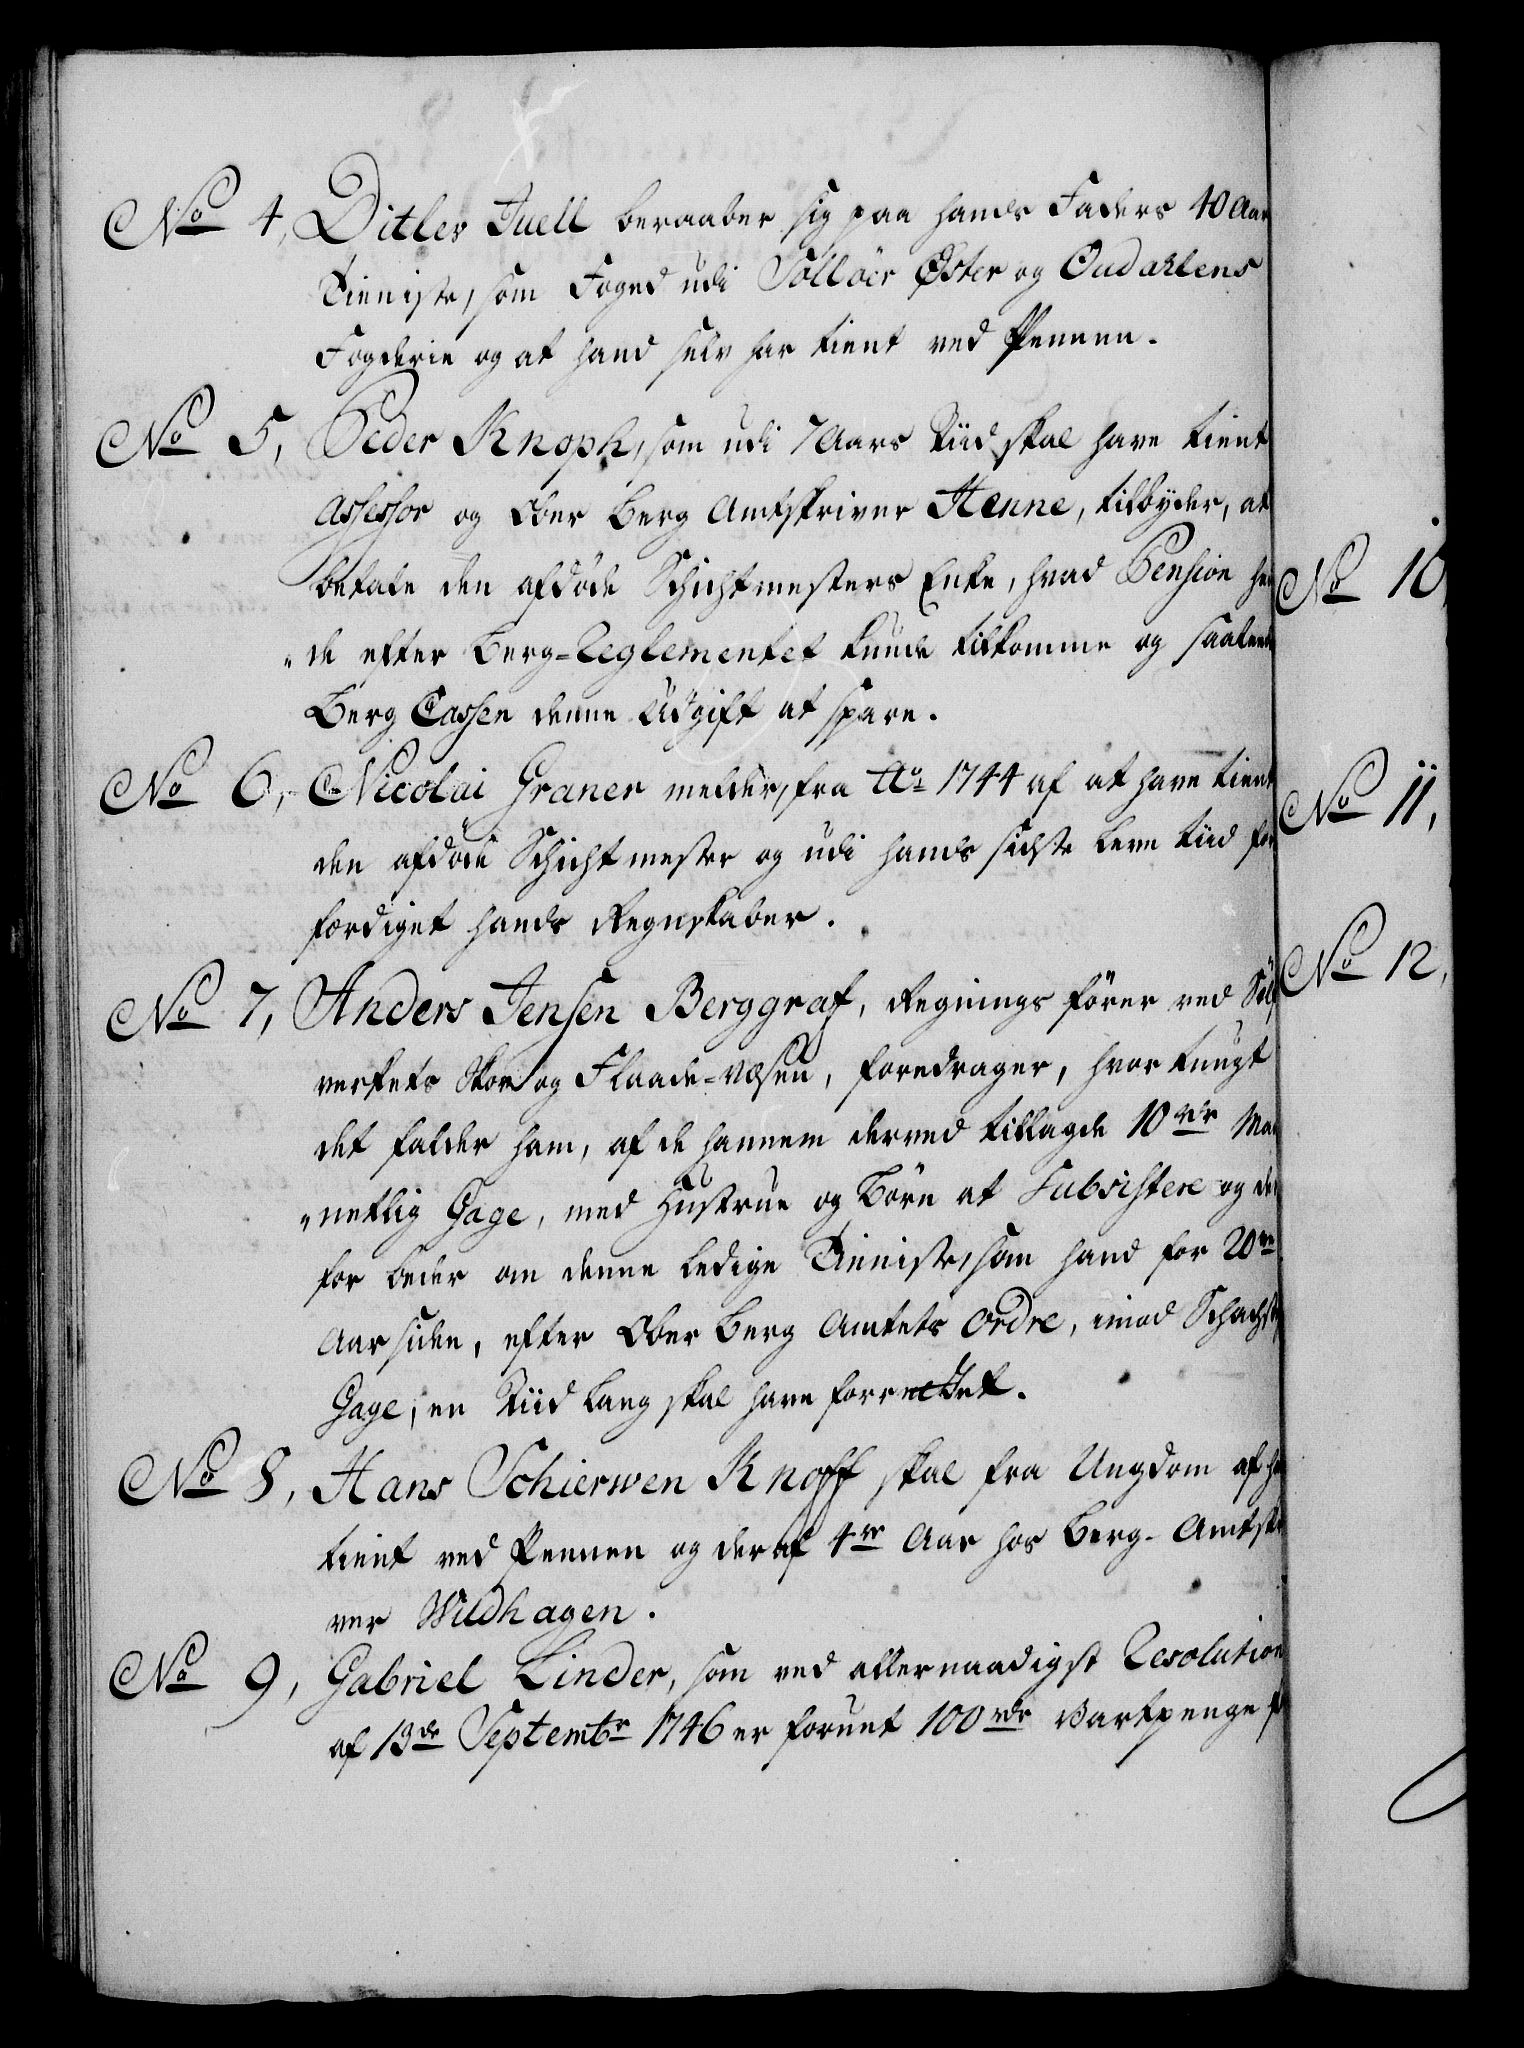 No 4, Ditlev Juell beraaber sig paa hands Faders 40 Aar
Tieniste, som Foged udi Solløer Øster og Oudahlens
Fogderie og at hand selv har tient ved Pennen.
No 5, Peder Knoph, som udi 7 Aars Tiid skal have tient
Assessor og Ober Berg Amtskriver Henne, tilbyder, at
betale den afdøde Schichtmesters Enke, hvad Pension hen
„de efter Berg-Reglementet kunde tilkomme og saaleede
Berg Cassen denne Udgift at spare.
No 6, Nicolai Graner melder, fra Ao 1744 af at have tient
den afdøde Schichtmester og udi hands sidste Leve tiid for
færdiget hands Regnskaber.
No 7, Anders Jensen Berggraf, Regnings fører ved Søl
verkets Skov og Flaade-Væsen, foredrager, hvor tungt
det falder ham, af de hannem derved tillagde 10 rdr Maa
„netlig Gage, med Hustrue og Børn at Subsistere og der
for beder om denne ledige Tieniste, som hand for 20ve
Aar siden, efter Ober Berg Amtets Ordre, imod Schacht
Gage, en Tiid lang skal have forrettet.
No 8, Hans Schierwen Knoff skal fra Ungdom af ha
tient ved Pennen og deraf 4re Aar hos Berg-Amtskri
ver Wildhagen.
No 9, Gabriel Linder, som ved allernaadigst Resolution
af 13de Septembr 1746 er forunt 100 rdr Vartpenge
No 10,
No 11,
No 12,